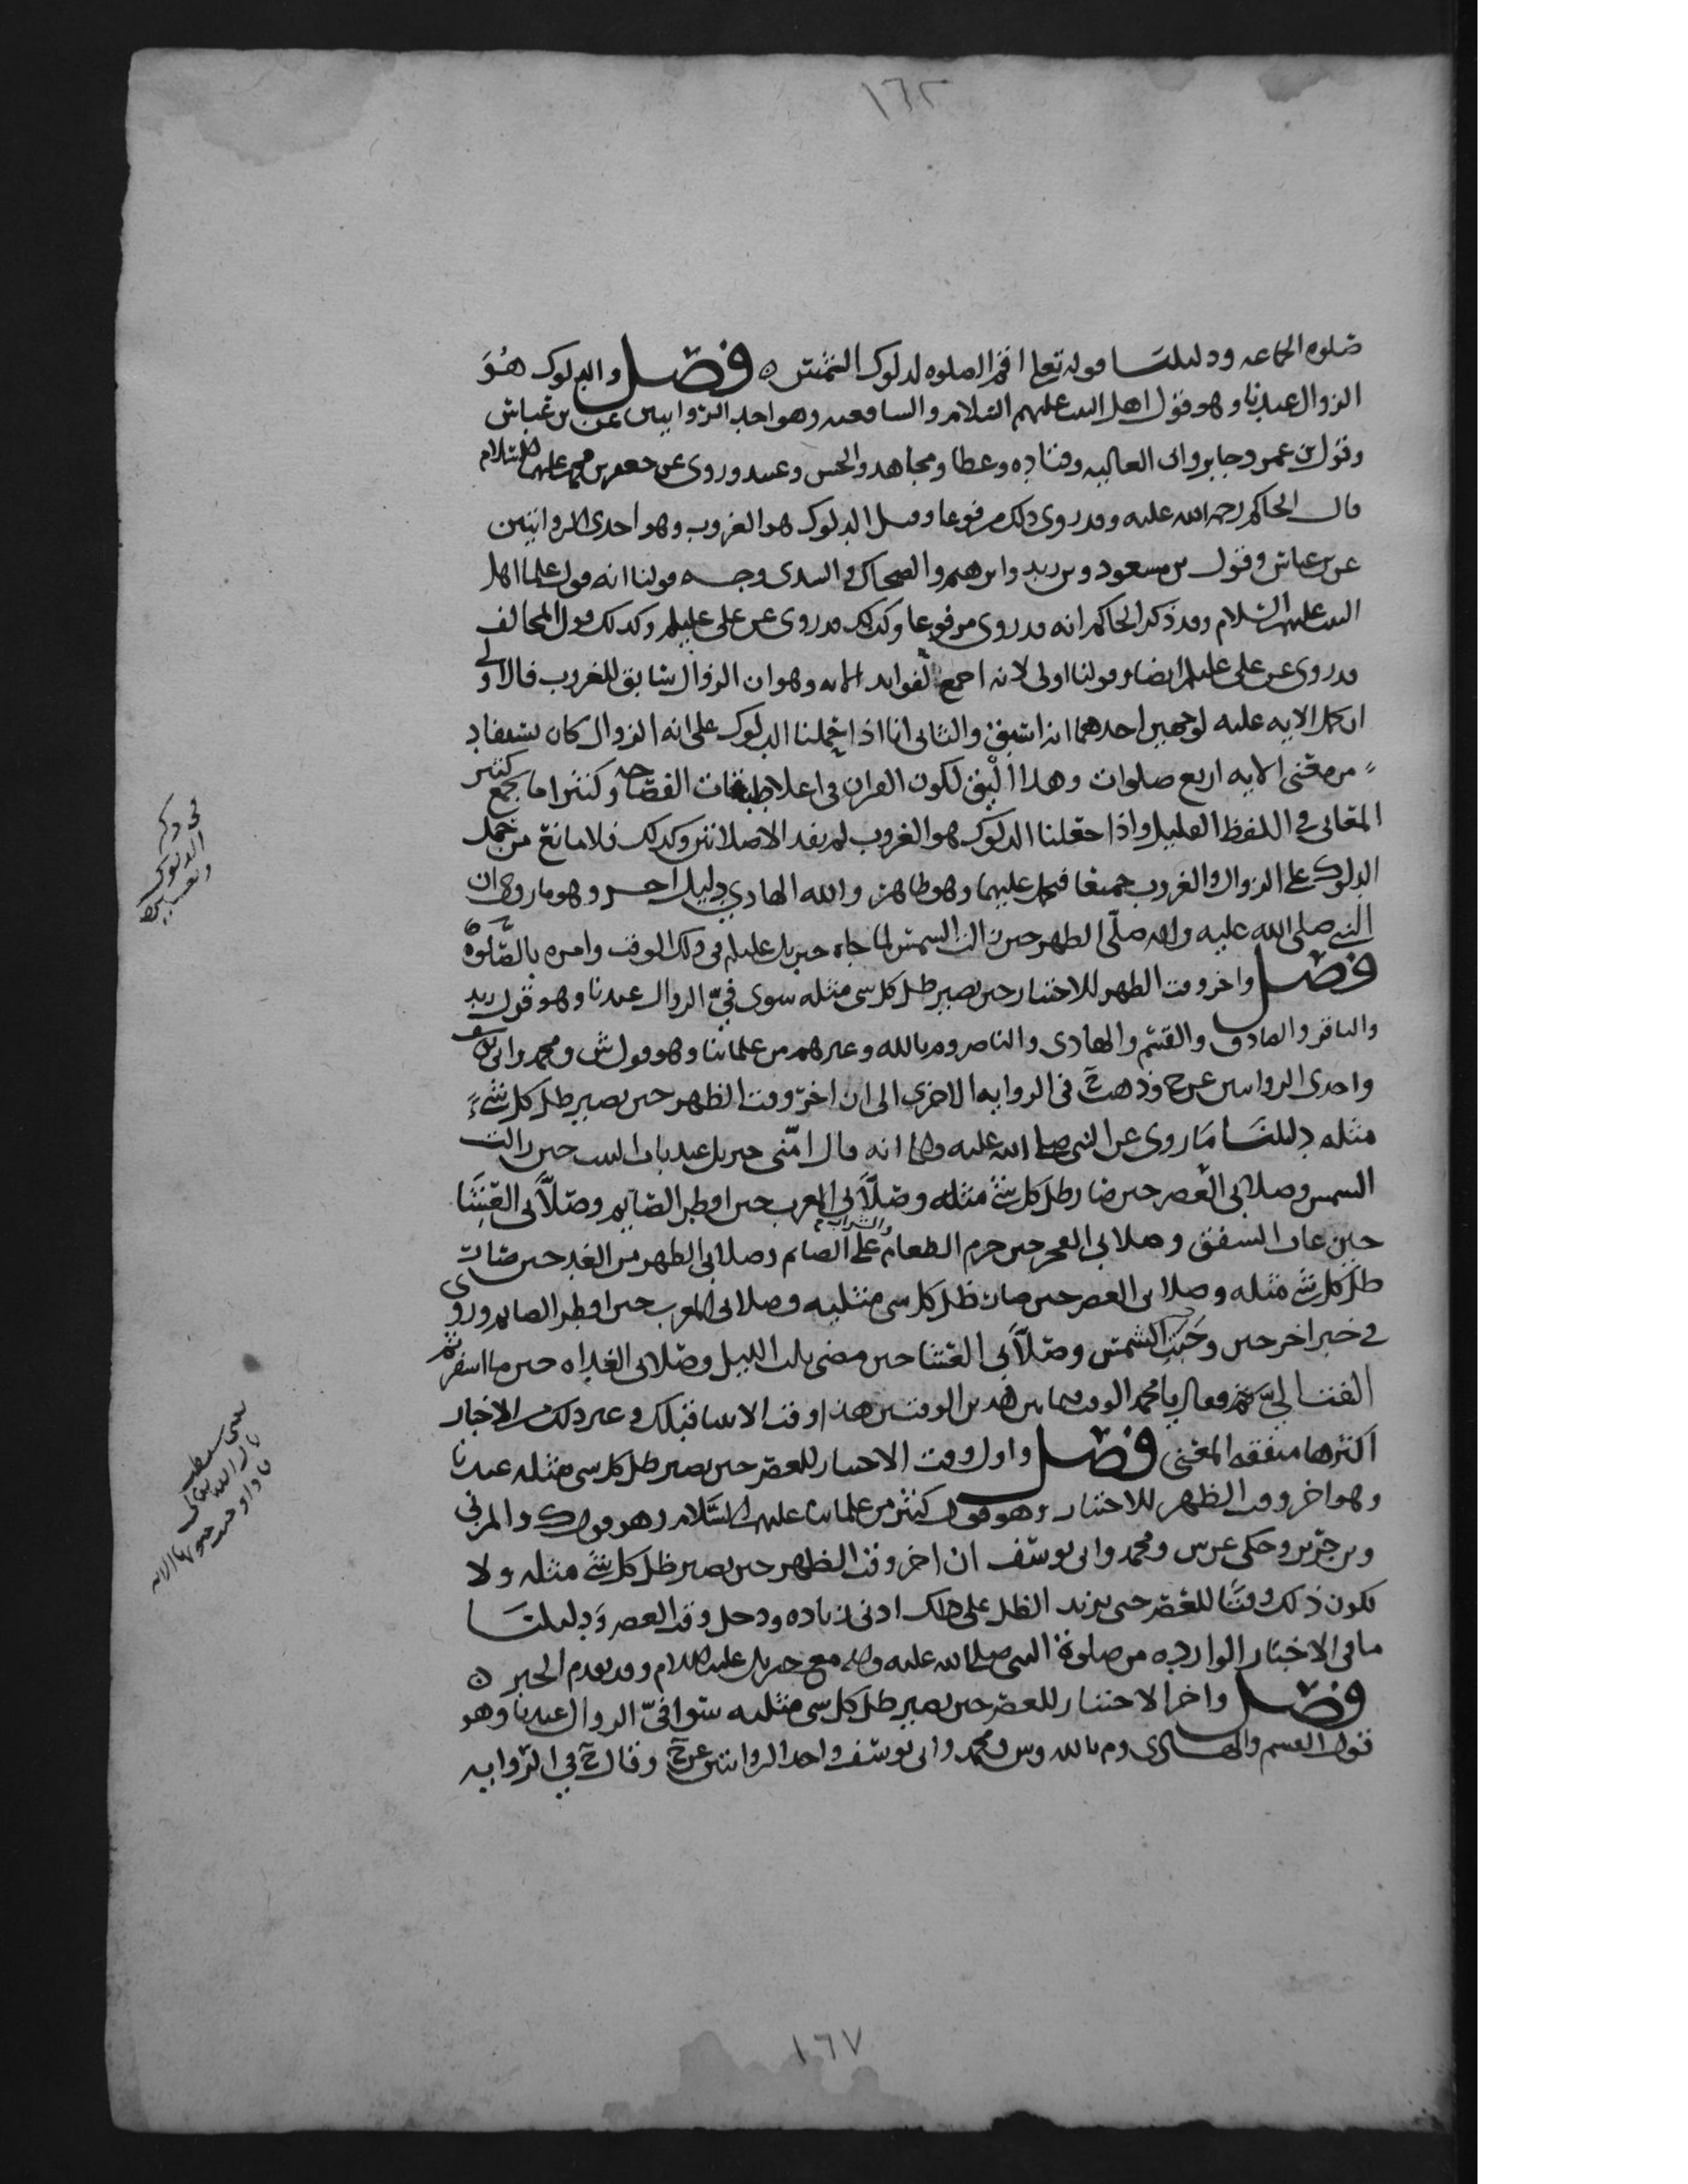 ١٦٢
صلوه الجماعه ودليلنا قوله تعلى اقم الصلوه لدلوك الشمس ه فصل والدلوك هو
الزوال عندنا وهو قول اهل البيت عليهم السلام والشافعيه وهو احد الروايتين عن بن عباس
وقول بن عمر وجابر وابى العاليه وقتاده وعطا ومجاهد والحسن وعبيد وروى عن جعفر بن محمد عليهما السلام
قال الحاكم رحمه الله عليه وقد روى ذلك مرفوعا وقيل الدلوك هو الغروب وهو احدى الروايتين
عن بن عباس وقول بن مسعود وبن زيد وابرهيم والضحاك والسدى وجه قولنا انه قول علما اهل
البيت عليهم السلام وقد ذكر الحاكم انه قد روى مرفوعا وكذلك قد روى عن على عليلم وكذلك قول المخالف
قد روى عن على عليلم ايضا وقولنا اولى لانه اجمع لفوايد الايه وهو ان الزوال سابق للغروب فالاولى
ان تحمل الايه عليه لوجهين احدهما انه اسبق والثانى انا اذا حملنا الدلوك على انه الزوال كان يستفاد
من معنى الايه اربع صلوات وهذا اليق لكون القران فى اعلا طبقات الفصاحه وكثيرا ما يجمع كثير
المعانى فى اللفظ القليل واذا جعلنا الدلوك هو الغروب لم يفد الا صلاتين وكذلك فلا مانع من حمل
الدلوك على الزوال والغروب جميعا فيحمل عليهما وهو ظاهر والله الهادي دليل اخر وهو ما روي ان
النبي صلى الله عليه واله صلى الظهر حين زالت الشمس لما جاه جبريل عليلم فى ذلك الوقت وامره بالصلوة ه
فصل واخر وقت الظهر للاختيار حين يصير ظل كل شى مثله سوى فيّ الزوال عندنا وهو قول زيد
والباقر والصادق والقسم والهادى والناصر وم بالله وغيرهم من علمائنا وهو قول ش ومحمد وابى يوسف
واحدى الروايتين عن ح وذهب ح فى الروايه الاخرى الى ان اخر وقت الظهر حين يصير ظل كل شيء
مثله دليلنا ما روى عن النبي صلى الله عليه واله انه قال امّنى جبريل عند باب البيت حين زالت
الشمس وصلا بى العصر حين صار ظل كل شئ مثله وصلّا بى المغرب حين افطر الصايم وصلّا بى العشا
حين غاب الشفق وصلا بى الفجر حين حرم الطعام والشراب على الصائم وصلا بى الظهر من الغد حين صار
ظل كل شئ مثله وصلا بى العصر حين صار ظل كل شى مثليه وصلا بى المغرب حين افطر الصايم وروى
في خبر اخر حين وجبت الشمس وصلّا بى العشا حين مضى ثلث الليل وصلا بى الغداه حين ما اسفر ثم
التفت اليّ ثم فقال يا محمد الوقت فيما بين هذين الوقتين هذا وقت الانبيا قبلك وغير ذلك من الاخبار
اكثرها متفقه المعنى فصل واول وقت الاختيار للعصر حين يصير ظل كل شى مثله عندنا
وهو اخر وقت الظهر للاختيار وهو قول كثير من علمائنا عليهم السلام وهو قول ك والمزنى
وبن جرير وحكى عن ش ومحمد وابى يوسف ان اخر وقت الظهر حين يصير ظل كل شئ مثله ولا
يكون ذلك وقتا للعصر حتى يزيد الظل على ذلك ادنى زياده ودخل وقت العصر ودليلنا
ما فى الاخبار الوارده من صلوة النبى صلى الله عليه واله مع جبريل عليه السلام وقد تقدم الخبر ه
فصل واخر الاختيار للعصر حين يصير ظل كل شى مثليه سوا فيّ الزوال عندنا وهو
قول القسم والهادى وم بالله وش ومحمد وابى يوسف واحد الروايتين عن ح وقال ح في الروايه
فى ذكر
الدلوك
وتفسيره
١٦٧